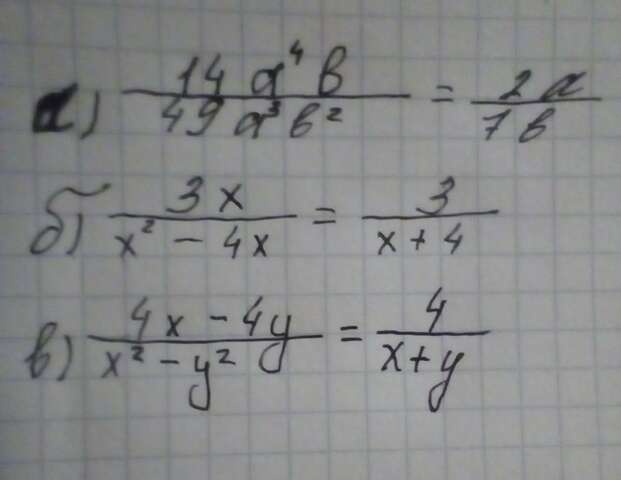 а) 14 a⁴ b / 49 a³ b² = 2 a / 7 b
б) 3x / x² - 4x = 3 / x + 4
в) 4x - 4y / x² - y² = 4 / x + y